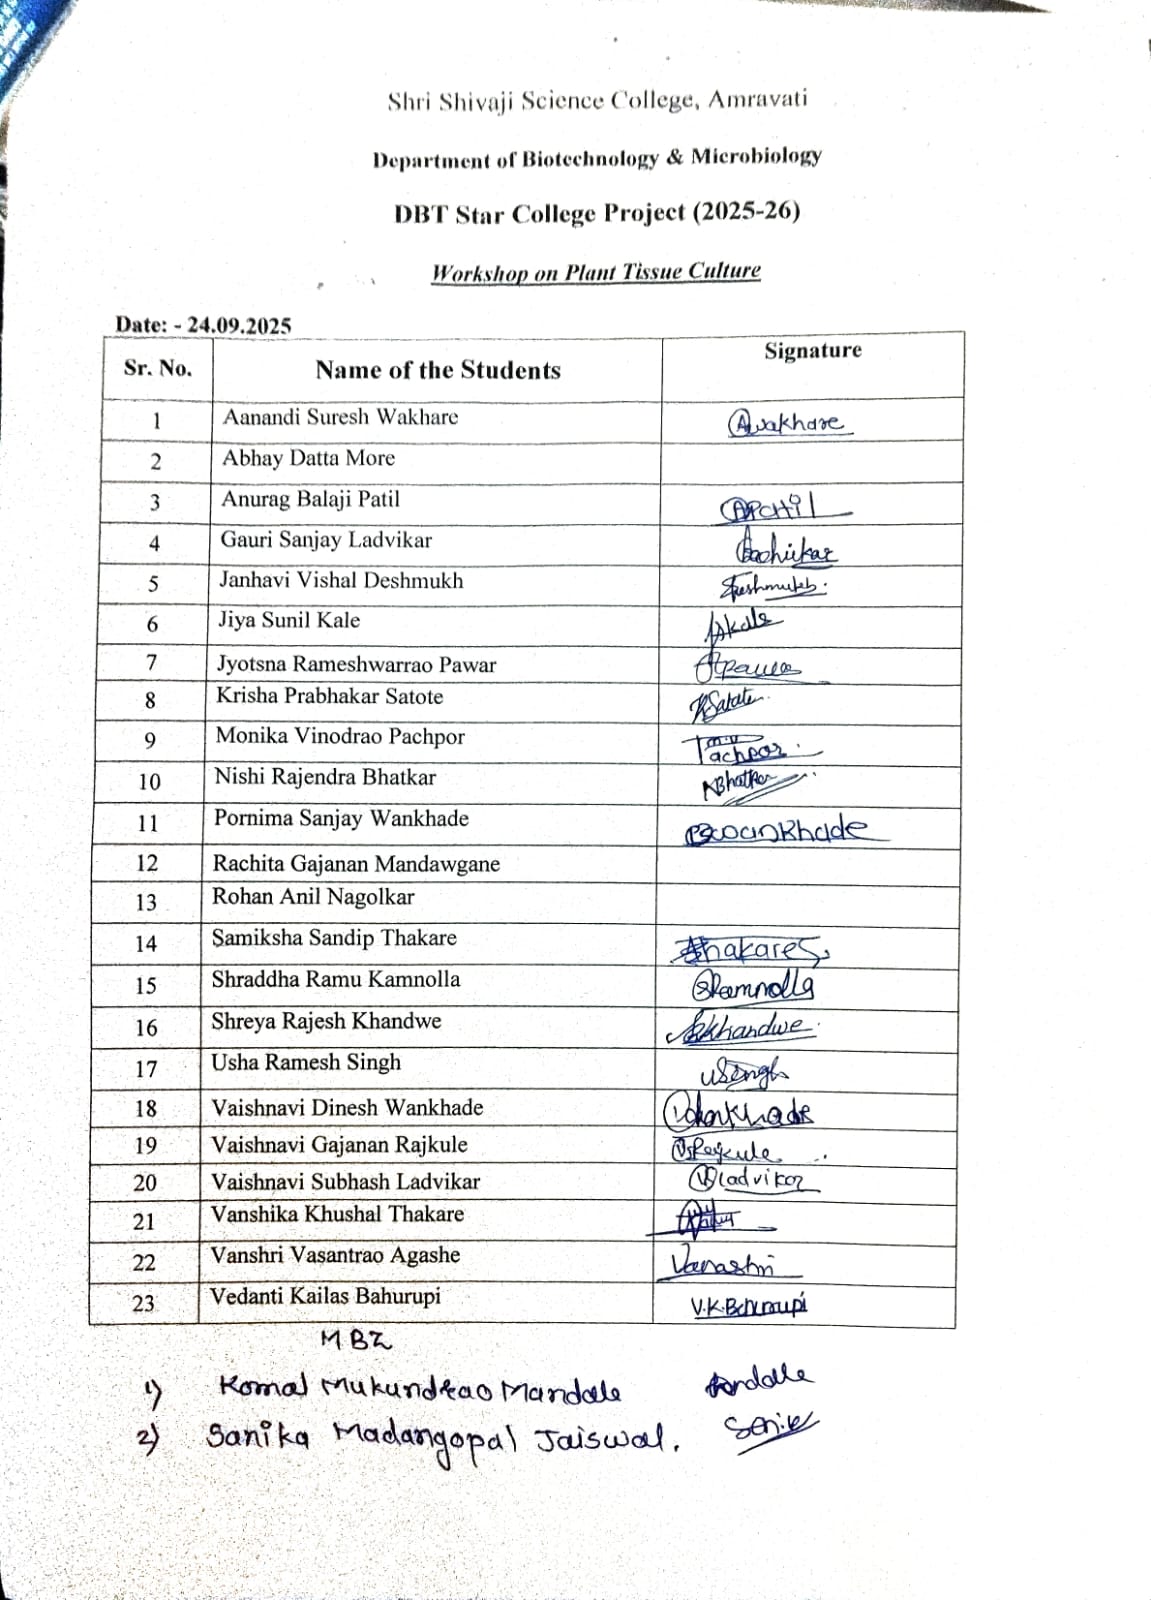 Shri Shivaji Science College, Amravati
Department of Biotechnology & Microbiology
DBT Star College Project (2025-26)
Workshop on Plant Tissue Culture
Date: - 24.09.2025
Sr. No. Name of the Students Signature
1 Aanandi Suresh Wakhare Awakhare
2 Abhay Datta More
3 Anurag Balaji Patil
4 Gauri Sanjay Ladvikar
5 Janhavi Vishal Deshmukh
6 Jiya Sunil Kale
7 Jyotsna Rameshwarrao Pawar
8 Krisha Prabhakar Satote
9 Monika Vinodrao Pachpor
10 Nishi Rajendra Bhatkar NBhatkar
11 Pornima Sanjay Wankhade
12 Rachita Gajanan Mandawgane
13 Rohan Anil Nagolkar
14 Samiksha Sandip Thakare
15 Shraddha Ramu Kamnolla
16 Shreya Rajesh Khandwe
17 Usha Ramesh Singh
18 Vaishnavi Dinesh Wankhade
19 Vaishnavi Gajanan Rajkule
20 Vaishnavi Subhash Ladvikar
21 Vanshika Khushal Thakare
22 Vanshri Vasantrao Agashe Vanashri
23 Vedanti Kailas Bahurupi V.K.Bahurupi
MBZ
1) Komal Mukundrao Mandale
2) Sanika Madangopal Jaiswal.